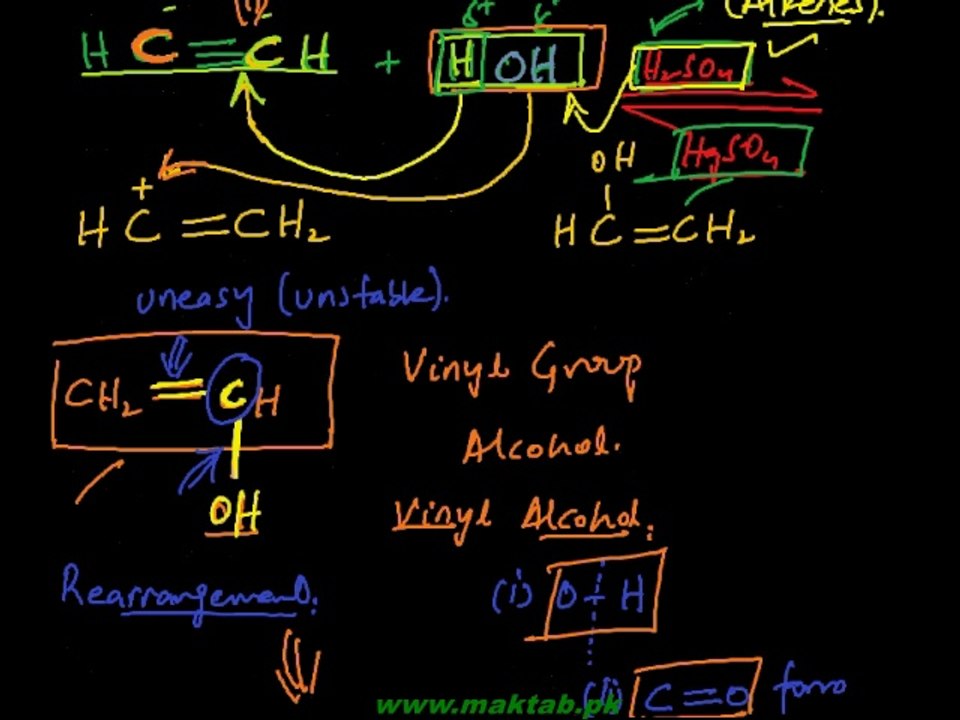 (Alkenes).
δ+ δ-
HC≡CH + H OH H₂SO₄
HgSO₄
OH
+
HC=CH₂ HC=CH₂
uneasy (unstable).
CH₂=CH
OH
Vinyl Group
Alcohol.
Vinyl Alcohol.
Rearrangement.
(i) O-H
(ii) C=O form
www.maktab.pk